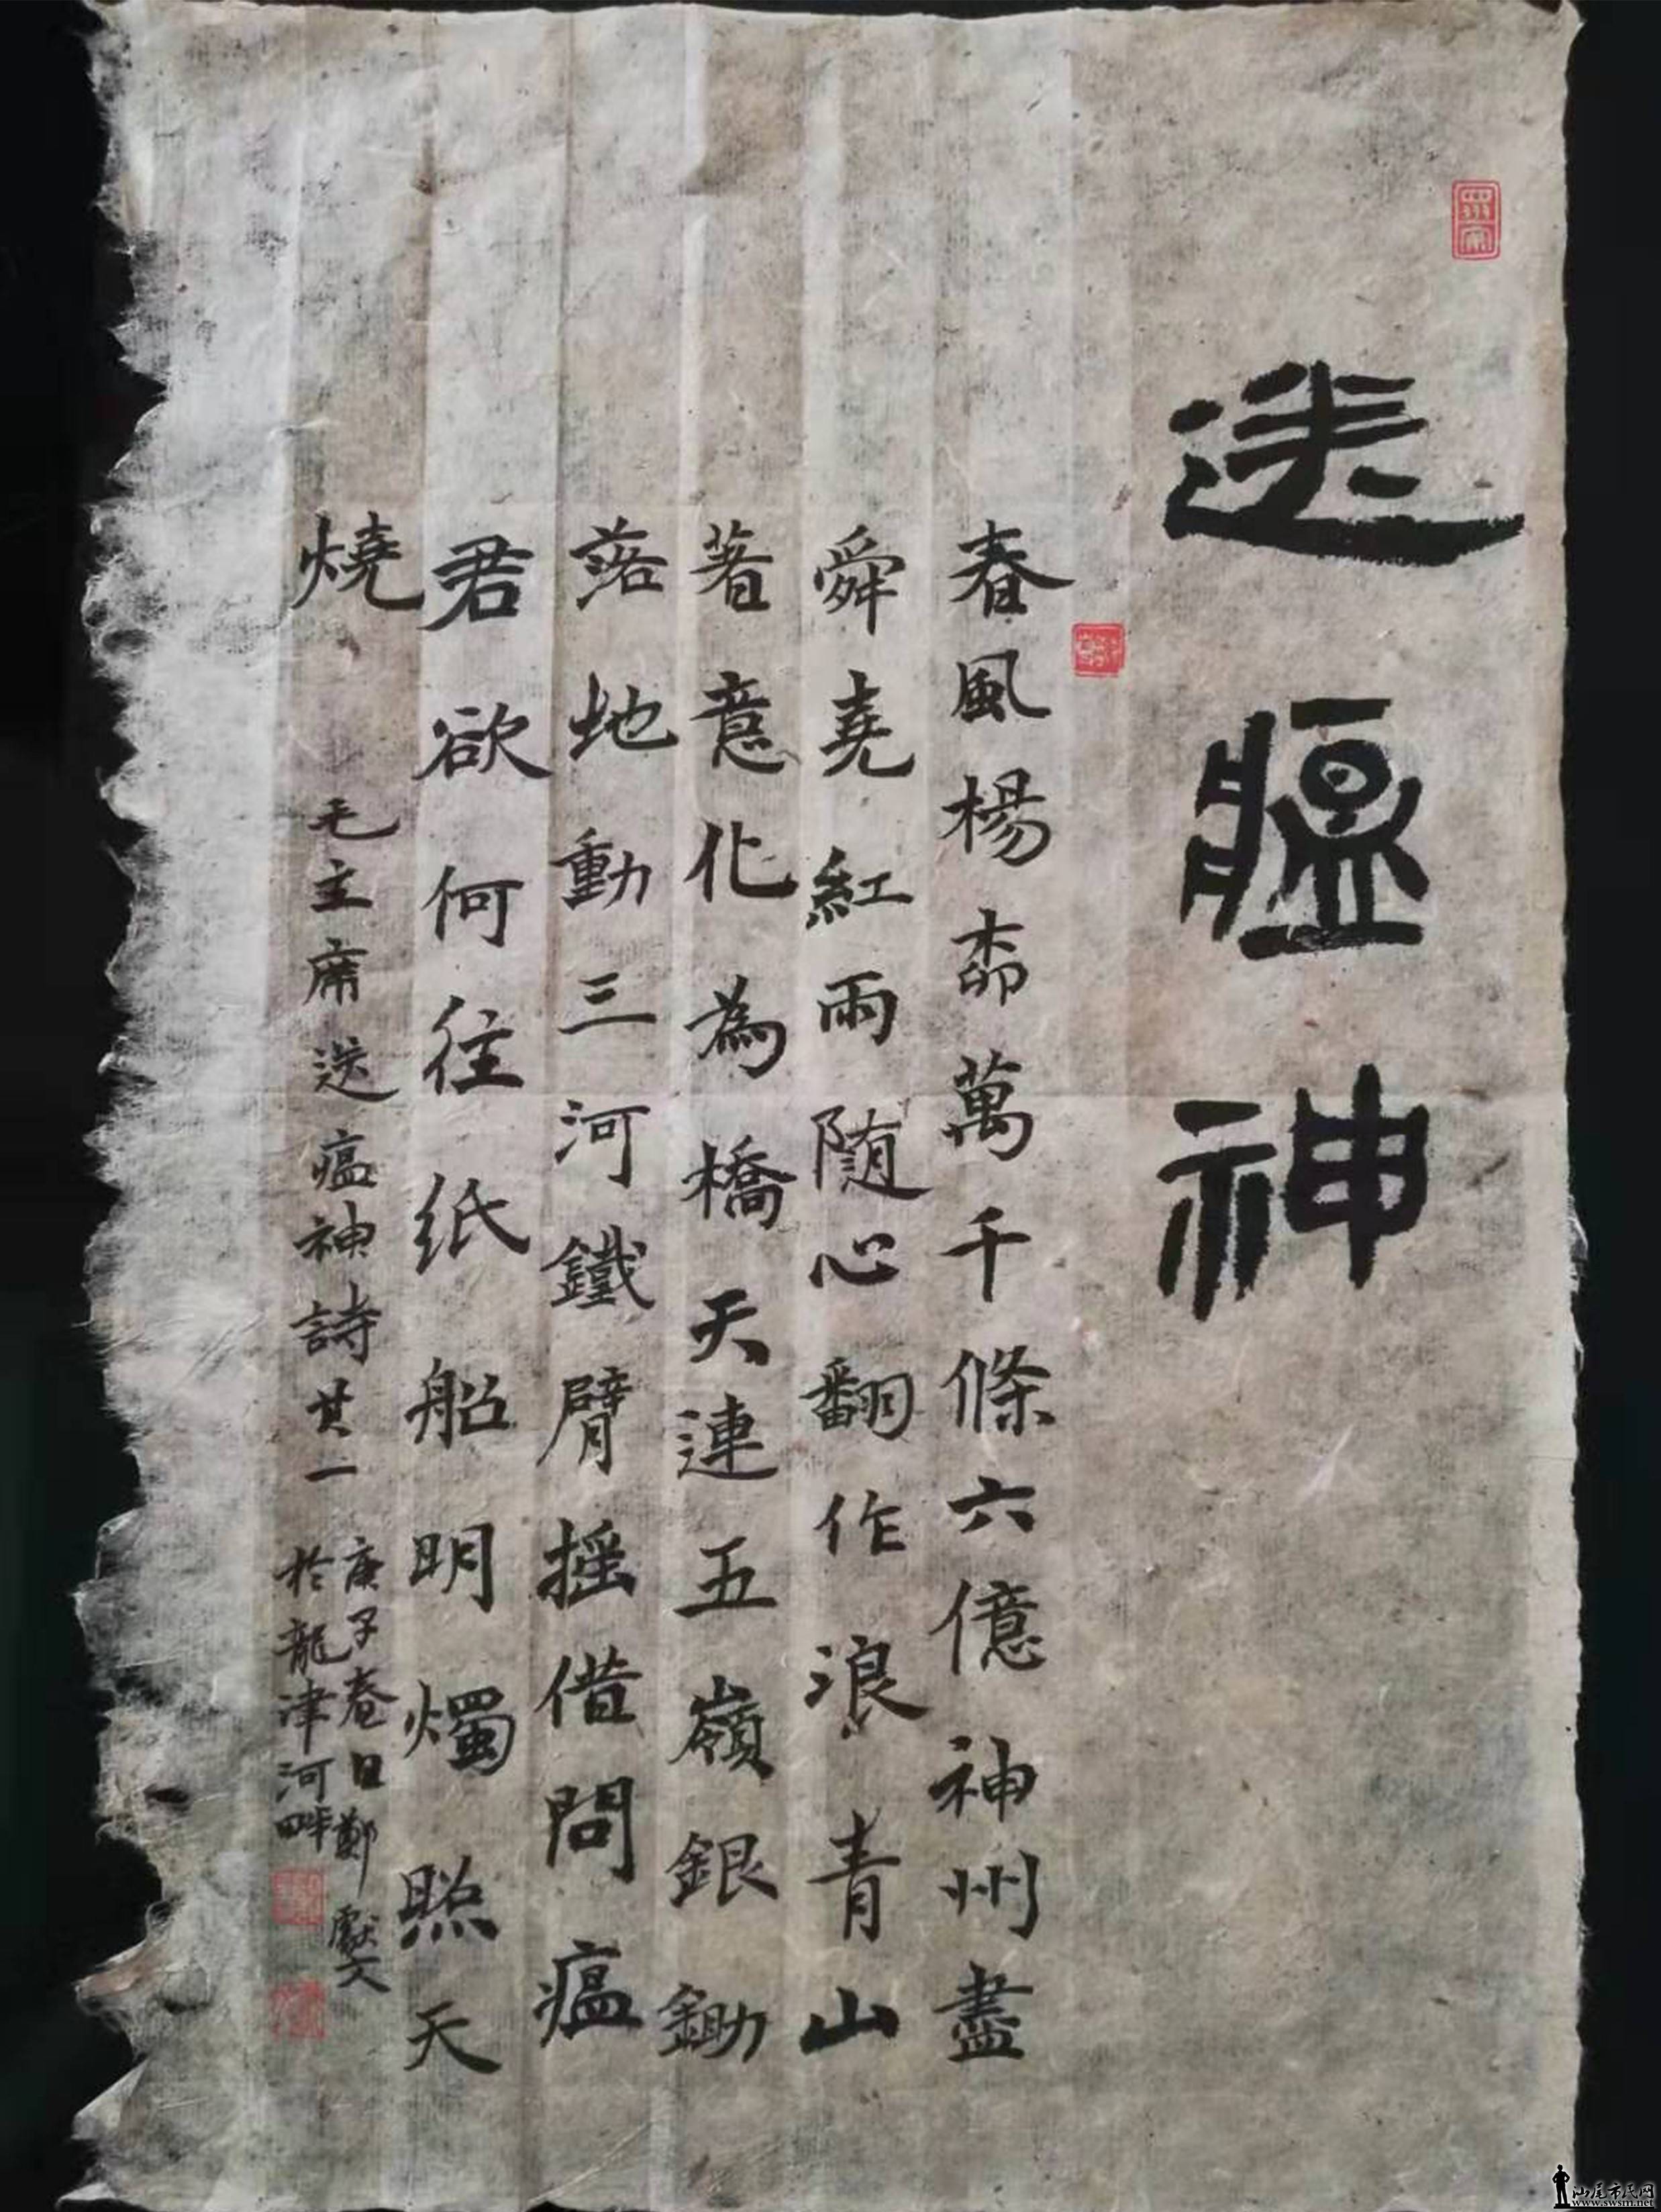 送瘟神
春風楊柳萬千條六億神州盡
舜堯紅雨随心翻作浪青山
著意化為橋天連五嶺銀鋤
落地動三河鐵臂摇借問瘟
君欲何往纸船明燭照天
燒
毛主席送瘟神詩其一
庚子春日鄭獻文
於龍津河畔
汕尾市民网
www.swsm.net